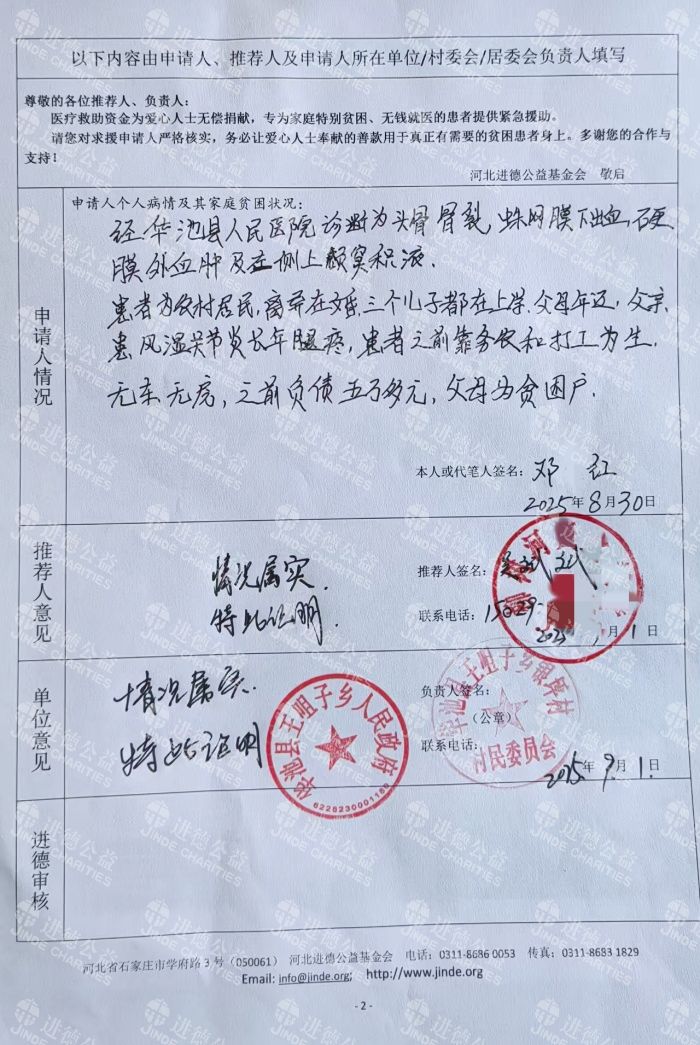 以下内容由申请人、推荐人及申请人所在单位/村委会/居委会负责人填写
尊敬的各位推荐人、负责人:
医疗救助资金为爱心人士无偿捐献，专为家庭特别贫困、无钱就医的患者提供紧急援助。
请您对求援申请人严格核实，务必让爱心人士奉献的善款用于真正有需要的贫困患者身上。多谢您的合作与
支持!
河北进德公益基金会 敬启
申请人情况
申请人个人病情及其家庭贫困状况:
经华池县人民医院诊断为头骨骨裂,蛛网膜下出血,硬
膜外血肿及左侧上颌窦积液.
患者为农村居民,离异在婚.三个儿子都在上学.父母年迈,父亲
患风湿关节炎长年腿疼,患者之前靠务农和打工为生.
无车无房,之前负债五万多元,父母为贫困户.
本人或代笔人签名: 邓 红
2025年8月30日
推荐人意见
情况属实.
特此证明.
推荐人签名: 斌斌
联系电话: 15029
月1日
单位意见
情况属实.
特此证明
负责人签名:
(公章)
联系电话:
2025年9月1日
华池县王咀子乡人民政府
6228230001180
华池县王咀子乡银坪村
村民委员会
进德审核
河北省石家庄市学府路3号(050061) 河北进德公益基金会 电话: 0311-8686 0053 传真: 0311-8683 1829
Email: info@jinde.org; http://www.jinde.org
- 2 -
进德公益
JINDE CHARITIES